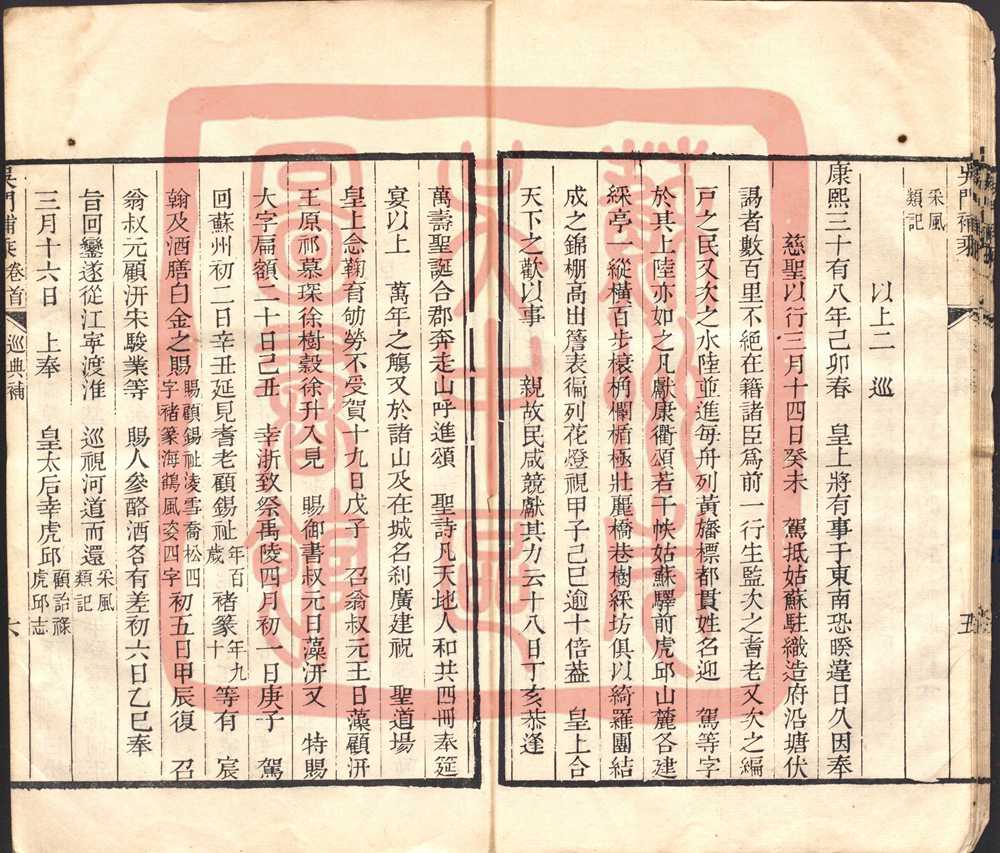 吳門補乘
五
采風
類記
以上二　巡
康熙三十有八年己卯春　皇上將有事于東南恐暌違日久因奉
慈聖以行三月十四日癸未　駕抵姑蘇駐織造府沿塘伏
謁者數百里不絕在籍諸臣爲前一行生監次之耆老又次之編
戸之民又次之水陸並進每舟列黃旛標都貫姓名迎　駕等字
於其上陸亦如之凡獻康衢頌若干帙姑蘇驛前虎邱山麓各建
綵亭一縱橫百步榱桷欄楯極壯麗橋巷樹綵坊俱以綺羅團結
成之錦棚高出簷表徧列花燈視甲子己巳逾十倍葢　皇上合
天下之歡以事　親故民咸競獻其力云十八日丁亥恭逢
萬壽聖誕合郡奔走山呼進頌　聖詩凡天地人和共四冊奉筵
宴以上　萬年之觴又於諸山及在城名刹廣建祝　聖道場
皇上念鞠育劬勞不受賀十九日戊子　召翁叔元王日藻顧汧
王原祁慕琛徐樹穀徐升入見　賜御書叔元日藻汧又　特賜
大字扁額二十日己丑　幸浙致祭禹陵四月初一日庚子　駕
回蘇州初二日辛丑延見耆老顧錫祉年百歲褚篆年九十等有　宸
翰及酒膳白金之賜賜顧錫祉淩雪喬松四字褚篆海鶴風姿四字初五日甲辰復　召
翁叔元顧汧宋駿業等　賜人參酪酒各有差初六日乙巳奉
旨回鑾遂從江寧渡淮　巡視河道而還采風類記
三月十六日　上奉　皇太后幸虎邱顧詒祿虎邱志
吳門補乘卷首　巡典補　六